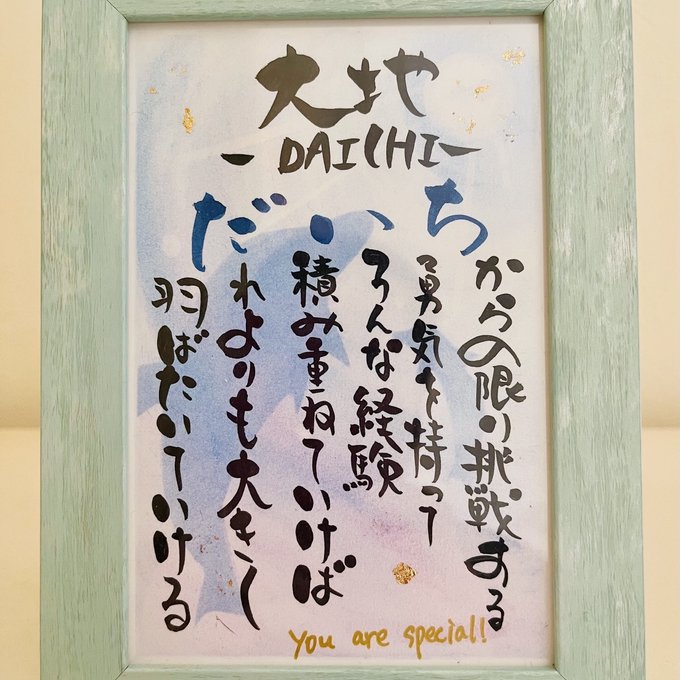 大地
-DAICHI-
ちからの限り挑戦する
勇気を持って
いろんな経験
積み重ねていけば
だれよりも大きく
羽ばたいていける
you are special!